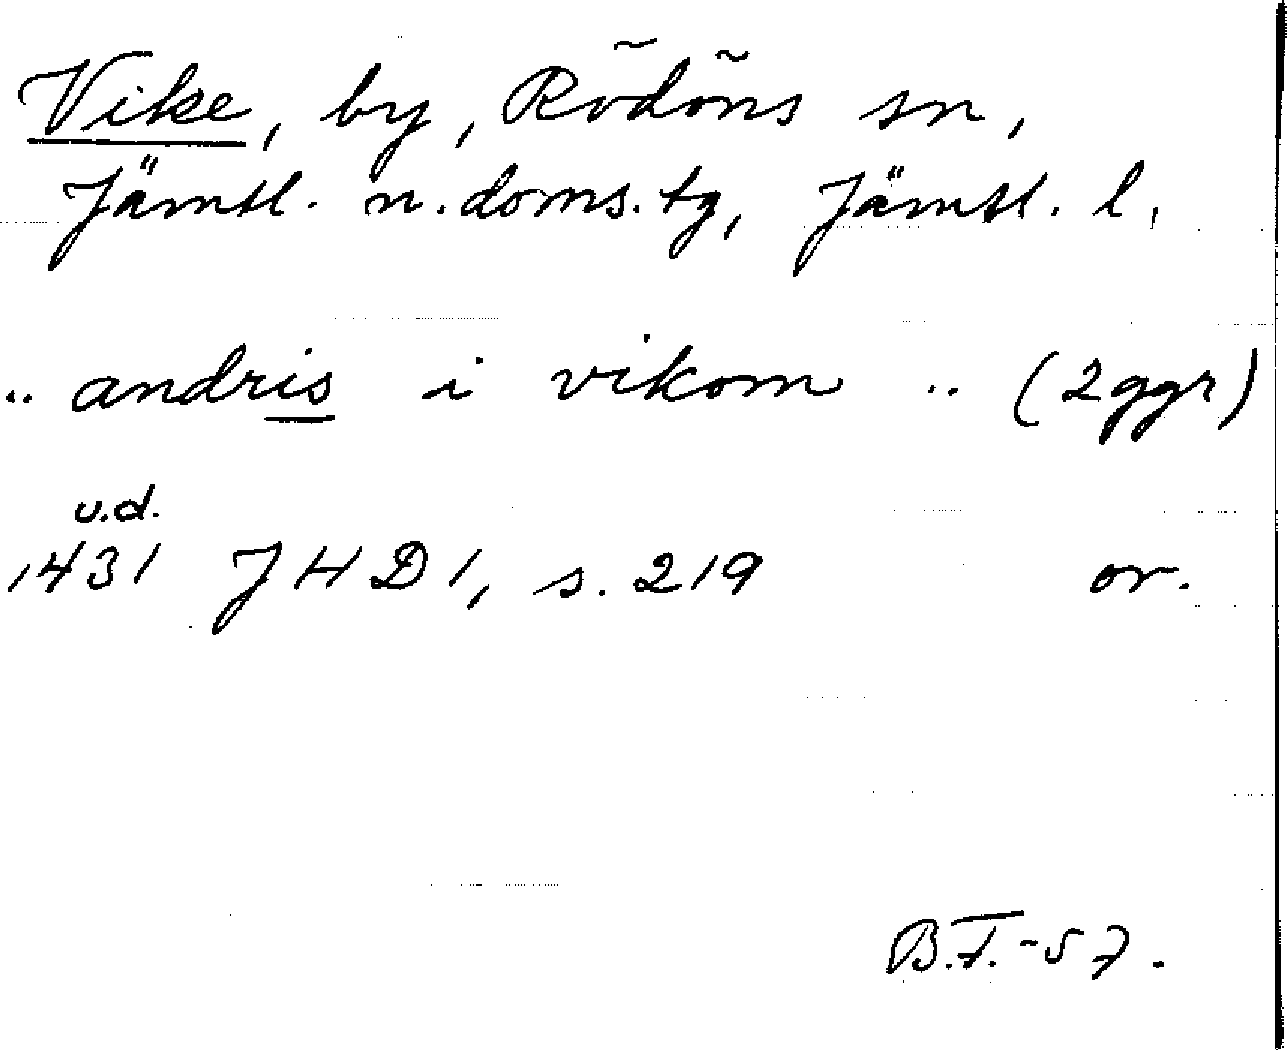 Vike, by, Rödöns sn,
Jämtl. n. doms. tg, Jämtl. l.
.. andris i vikom .. (2ggr)
u.d.
1431 JHD 1, s. 219 or.
B.F. -57.